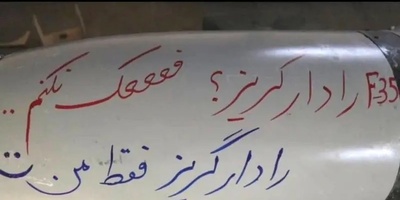 F35 رادارگریز؟ فععععک نکنم..
رادارگریز فقط من